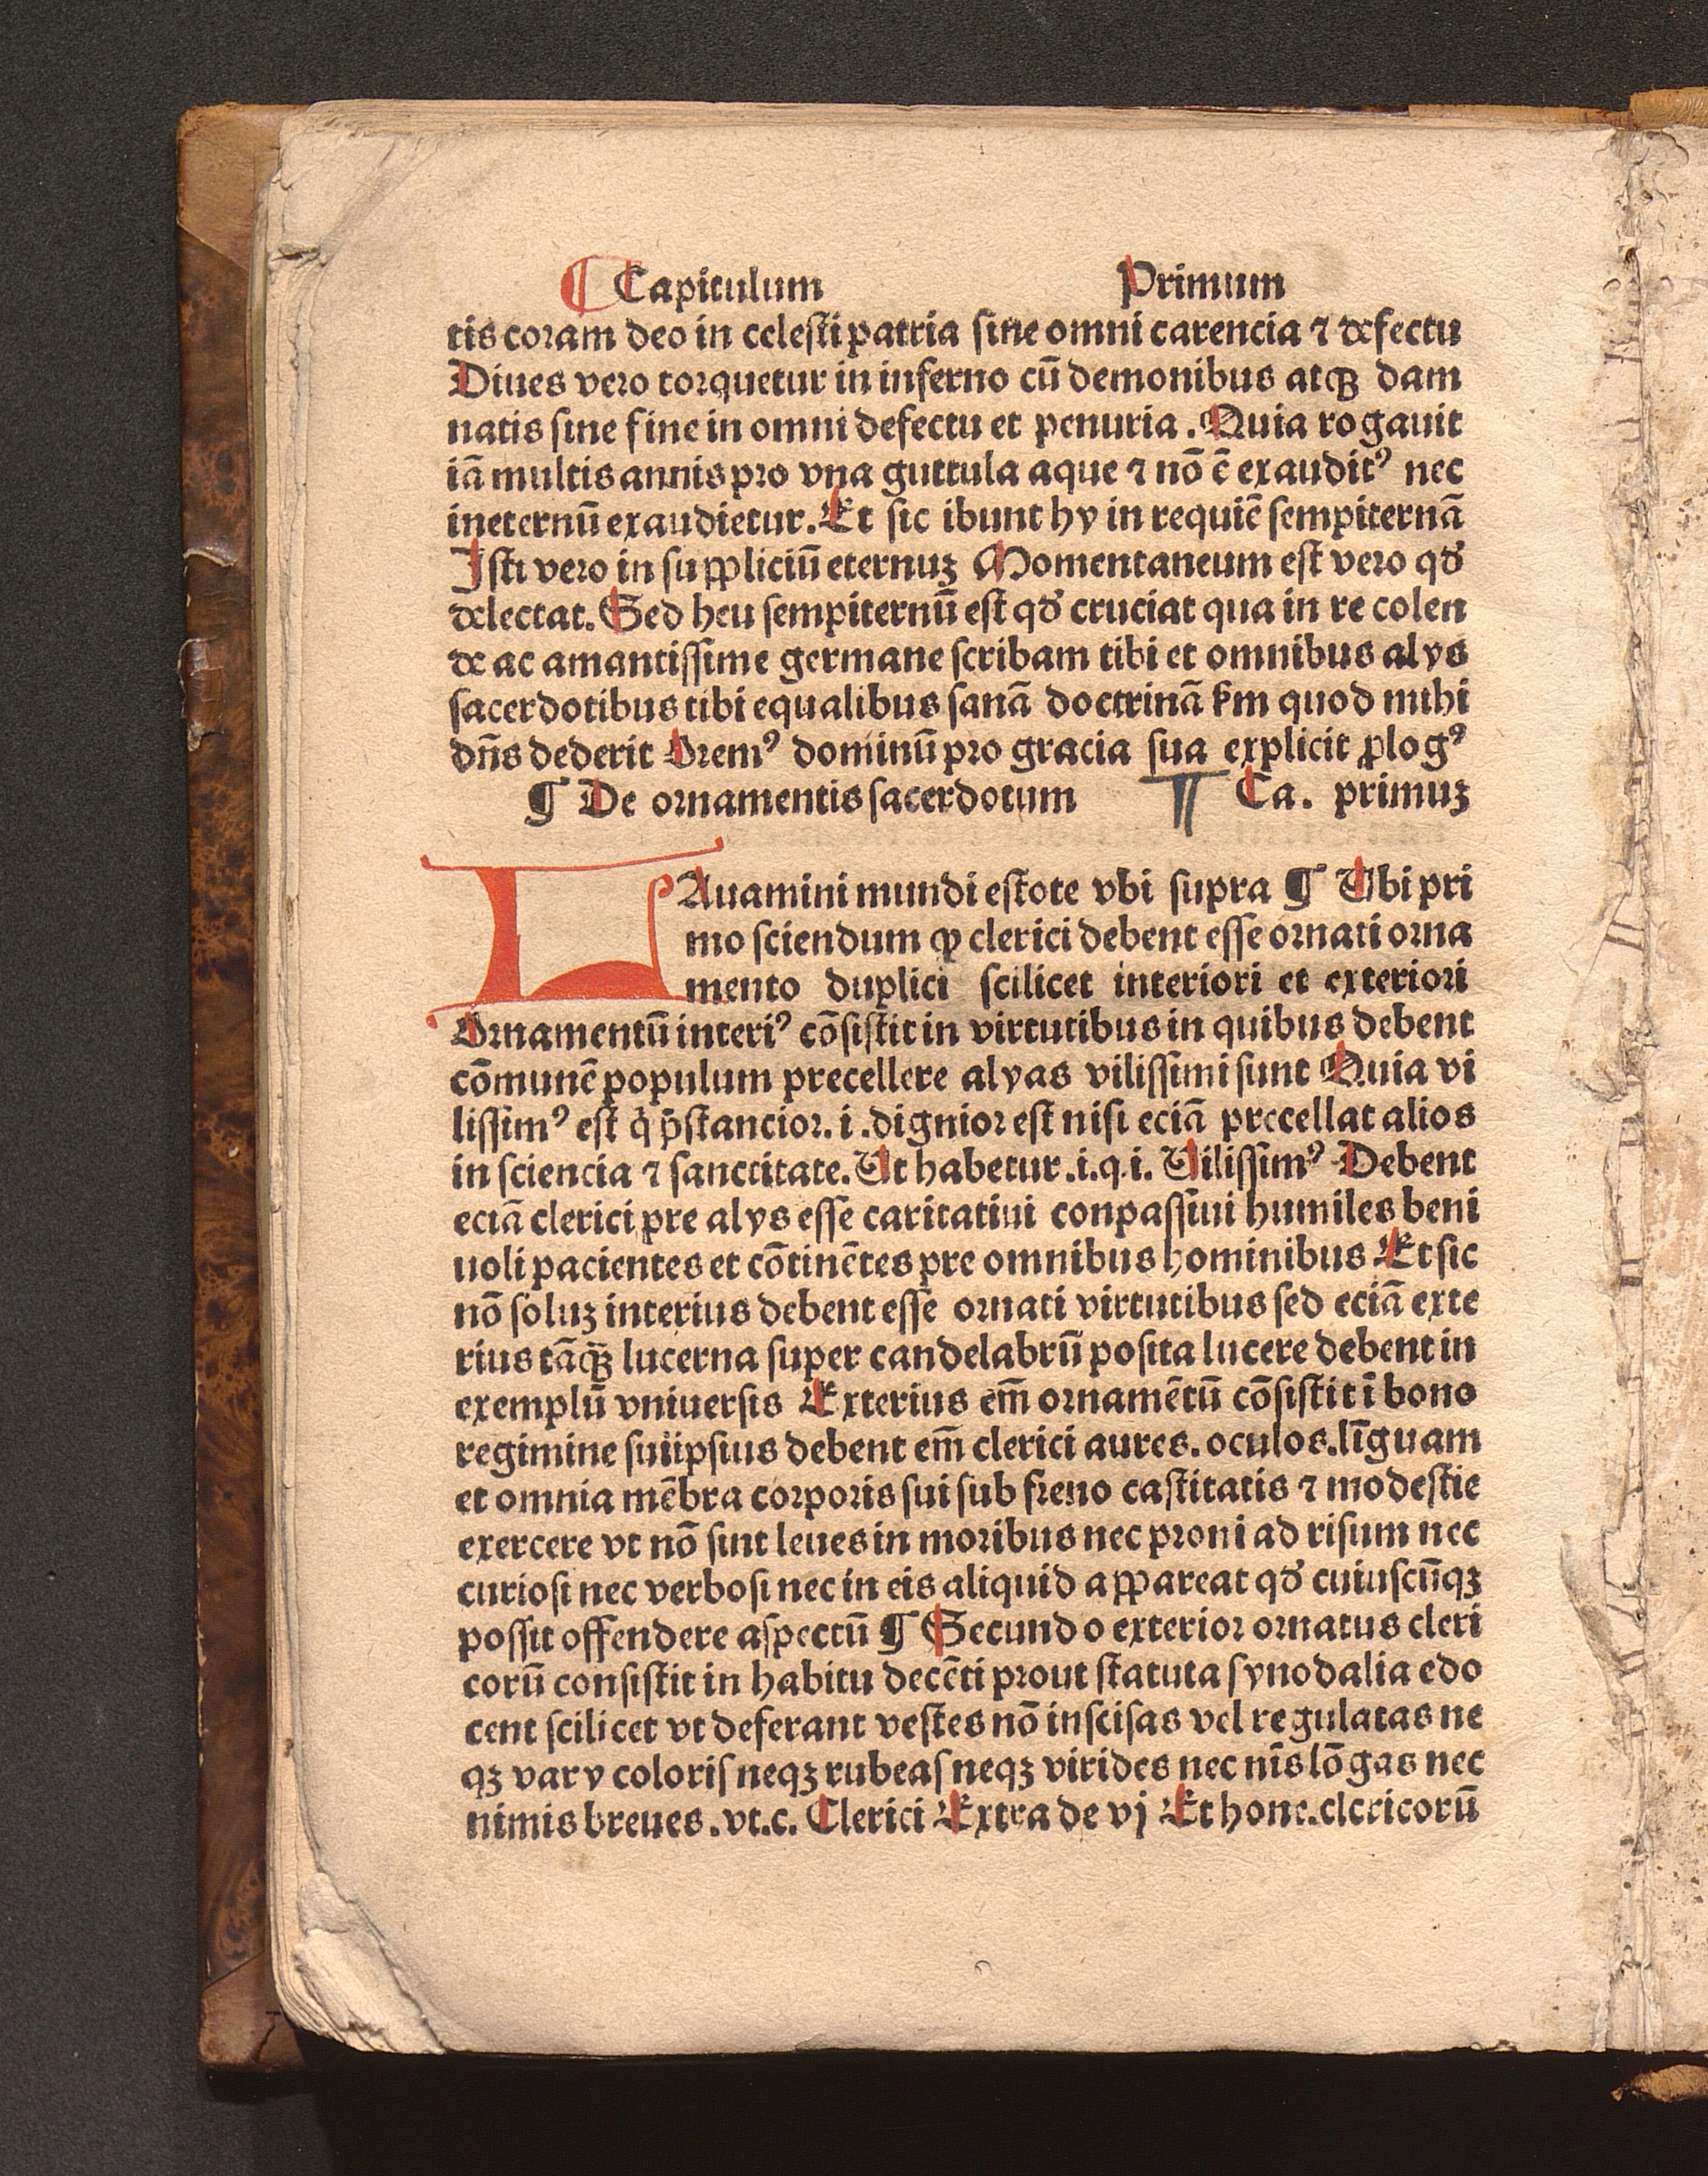 ¶ Capitulum Primum
tis coram deo in celesti patria sine omni carencia ⁊ defectu
Diues vero torquetur in inferno cū demonibus atqꝫ dam
natis sine fine in omni defectu et penuria. Quia rogauit
iā multis annis pro vna guttula aque ⁊ nō ē exauditꝰ nec
ineternū exaudietur. Et sic ibunt hy in requiē sempiternā
Isti vero in suppliciū eternuꝫ Momentaneum est vero qđ
delectat. Sed heu sempiternū est qđ cruciat qua in re colen
de ac amantissime germane scribam tibi et omnibus alys
sacerdotibus tibi equalibus sanā doctrinā ẜm quod mihi
dn̄s dederit Oremꝰ dominū pro gracia sua explicit ꝓlogꝰ
¶ De ornamentis sacerdotum ¶ Ca. primuꝫ
LAuamini mundi estote vbi supra ¶ Ubi pri
mo sciendum ꝙ clerici debent esse ornati orna
mento duplici scilicet interiori et exteriori
Ornamentū interiꝰ cōsistit in virtutibus in quibus debent
cōmunē populum precellere alyas vilissimi sunt Quia vi
lissimꝰ est q̇ p̄stancior. i. dignior est nisi eciā precellat alios
in sciencia ⁊ sanctitate. Ut habetur .i.q.i. Uilissimꝰ Debent
eciā clerici pre alys esse caritatiui conpassiui humiles beni
uoli pacientes et cōtinētes pre omnibus hominibus Et sic
nō soluꝫ interius debent esse ornati virtutibus sed eciā exte
rius tāq̄ꝫ lucerna super candelabrū posita lucere debent in
exemplū vniuersis Exterius em̄ ornamētū cōsistit ī bono
regimine suiipsius debent em̄ clerici aures. oculos. līguam
et omnia mēbra corporis sui sub freno castitatis ⁊ modestie
exercere vt nō sint leues in moribus nec proni ad risum nec
curiosi nec verbosi nec in eis aliquid appareat qđ cuiuscūqꝫ
possit offendere aspectū ¶ Secundo exterior ornatus cleri
corū consistit in habitu decēti prout statuta synodalia edo
cent scilicet vt deferant vestes nō inscisas vel regulatas ne
qꝫ vary coloris neqꝫ rubeas neqꝫ virides nec nīs lōgas nec
nimis breues. vt.c. Clerici Extra de vj Et hone. clericorū